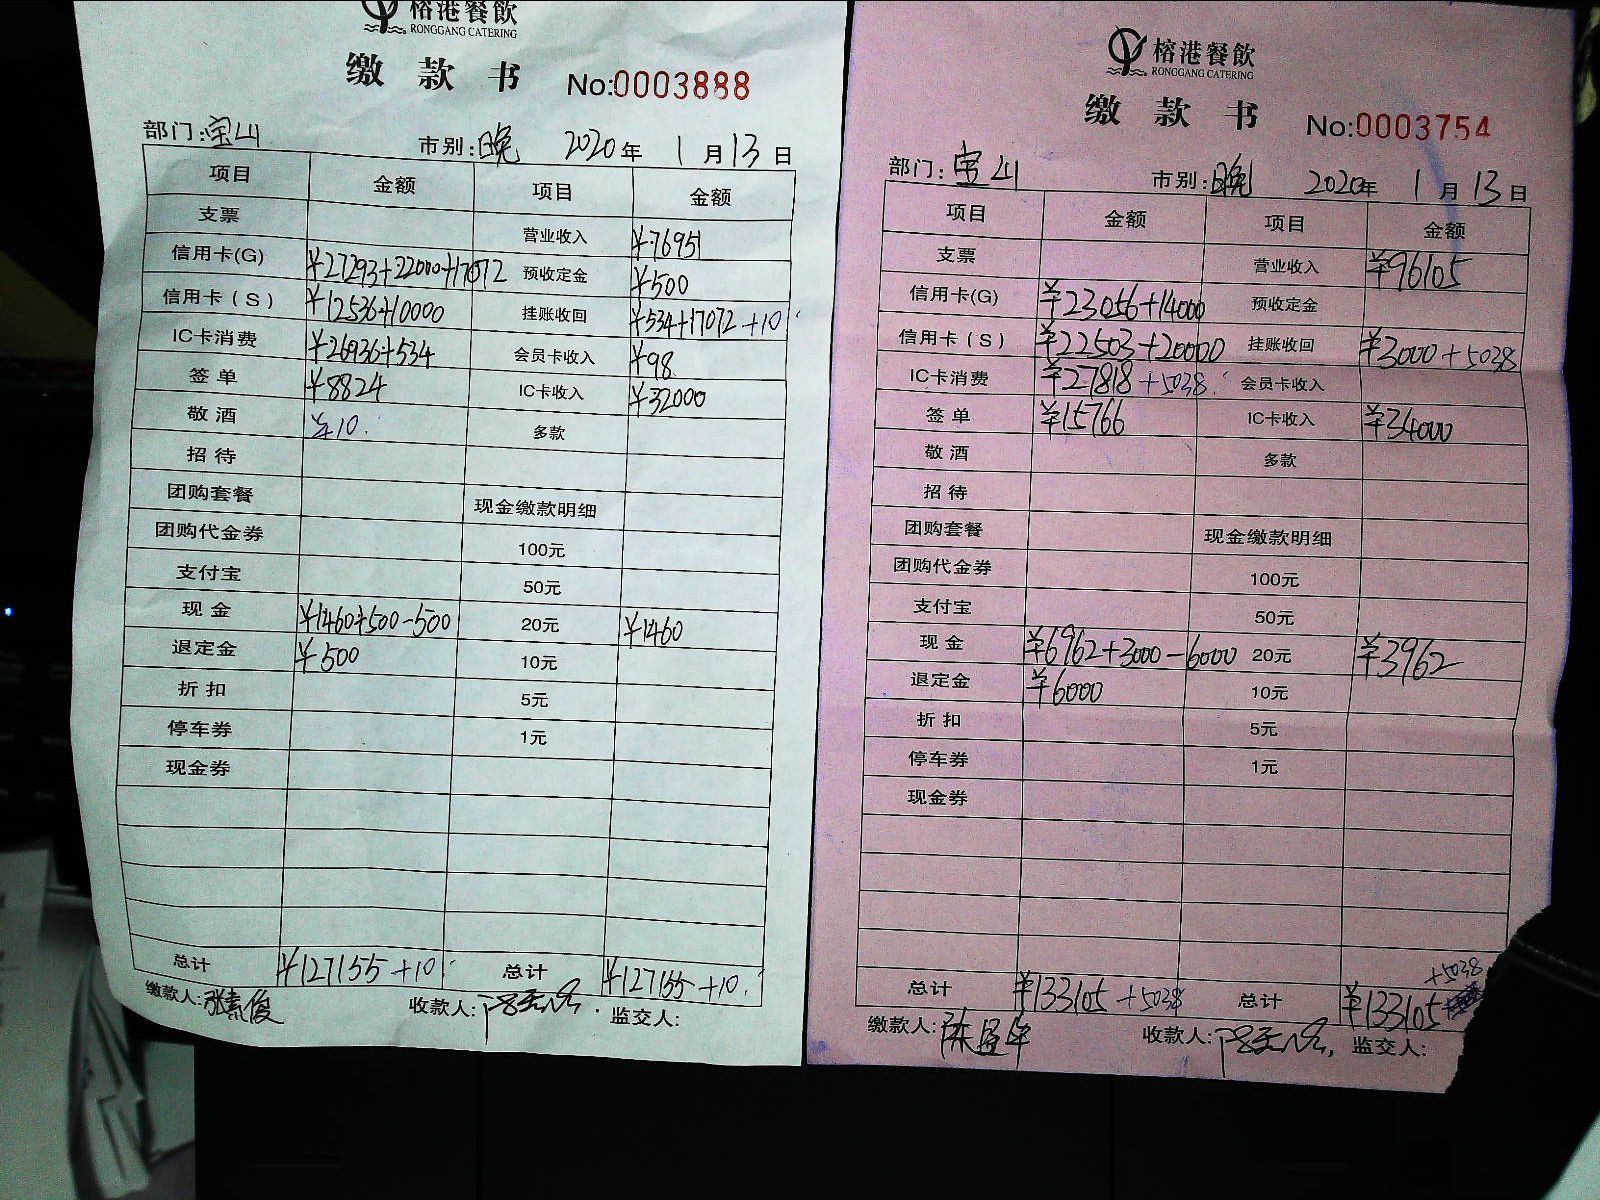 榕港餐飲
RONGGANG CATERING
缴款书 No:0003888
部门:宝山 市别:晚 2020年1月13日
项目 金额 项目 金额
支票 营业收入 ¥76951
信用卡(G) ¥27293+22000+17072 预收定金 ¥500
信用卡(S) ¥12536+10000 挂账收回 ¥534+17072+10
IC卡消费 ¥26936+534 会员卡收入 ¥98
签单 ¥8824 IC卡收入 ¥32000
敬酒 ¥10. 多款
招待
团购套餐 现金缴款明细
团购代金券 100元
支付宝 50元
现金 ¥1460+500-500 20元 ¥1460
退定金 ¥500 10元
折扣 5元
停车券 1元
现金券
总计 ¥127155+10 总计 ¥127155+10.
缴款人:张素俊 收款人: 监交人:
榕港餐飲
RONGGANG CATERING
缴款书 No:0003754
部门:宝山 市别:晚 2020年1月13日
项目 金额 项目 金额
支票 营业收入 ¥96105
信用卡(G) ¥23056+14000 预收定金
信用卡(S) ¥22503+20000 挂账收回 ¥3000+5038
IC卡消费 ¥27818+5038. 会员卡收入
签单 ¥15766 IC卡收入 ¥34000
敬酒 多款
招待
团购套餐 现金缴款明细
团购代金券 100元
支付宝 50元
现金 ¥6962+3000-6000 20元 ¥3962
退定金 ¥6000 10元
折扣 5元
停车券 1元
现金券
总计 ¥133105+5038 总计 ¥133105+5038
缴款人: 收款人: 监交人: